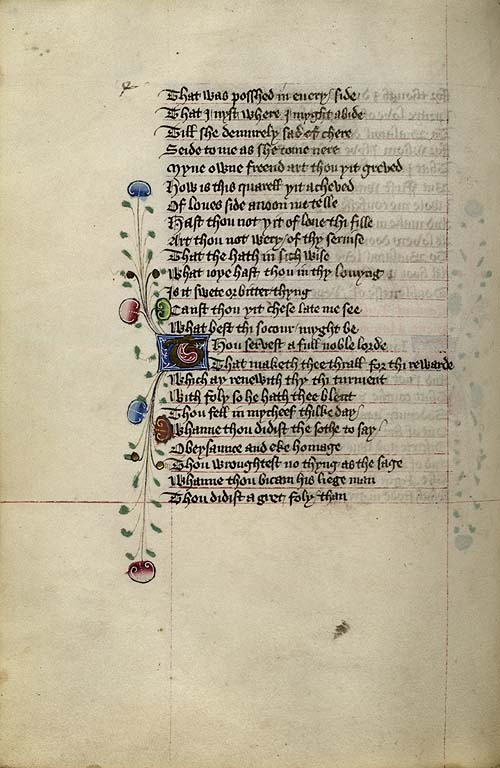 That was posshed in euery side
That I nyst where I myght abide
Till she demurely sad of chere
Seide to me as she come nere
Myne owne freend art thou yit greved
How is this quarell yit acheved
Of loues side anoon me telle
Hast thou not yit of loue thi fille
Art thou not wery of thy seruise
That the hath in sich wise
What ioye hast thou in thy louyng
Is it swete or bitter thyng
Canst thou yit chese late me see
What best thi socour myght be
Thou servest a full noble lorde
That maketh thee thrall for thi rewarde
Which ay renewith thy turment
With foly so he hath thee blent
Thou fell in mycheef thilke day
Whanne thou didist the sothe to say
Obeysaunce and eke homage
Thou wroughtest no thyng as the sage
Whanne thou bicam his liege man
Thou didist a gret foly than